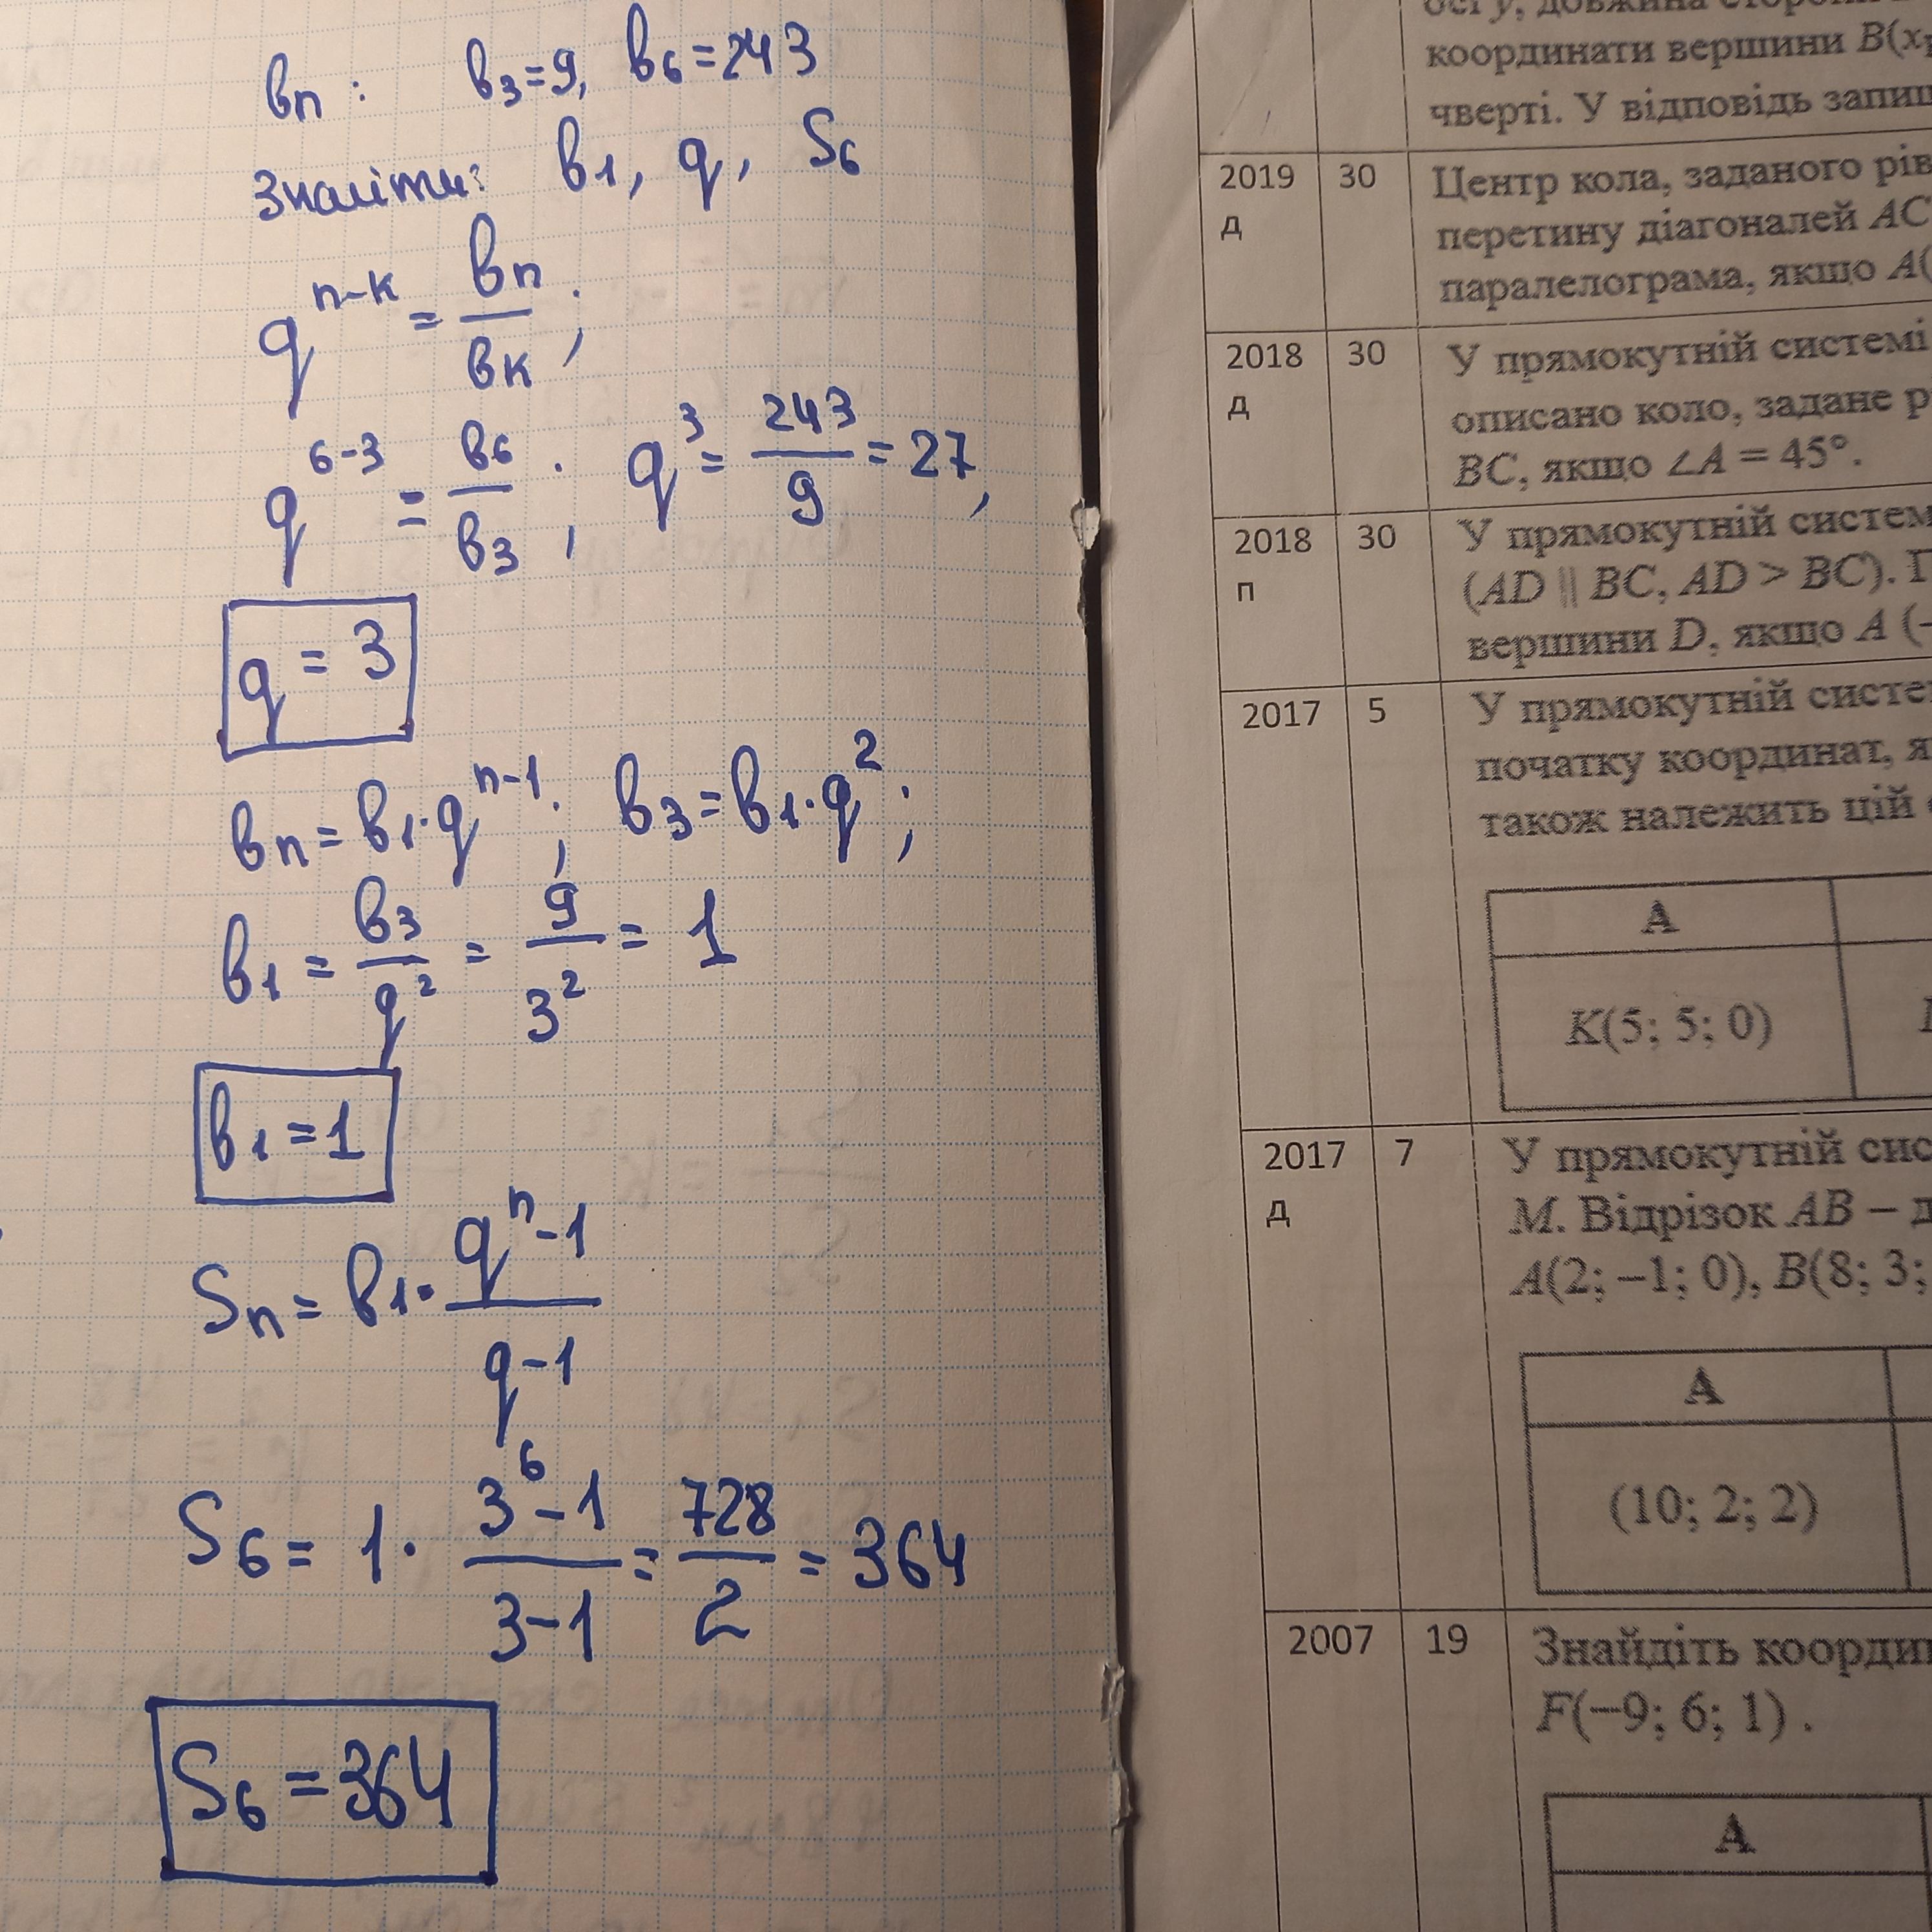 bn : b3=9, b6=243
Знайти: b1, q, S6
q^(n-k) = bn/bk ;
q^(6-3) = b6/b3 ; q^3 = 243/9 = 27,
q = 3
bn = b1·q^(n-1) ; b3 = b1·q^2 ;
b1 = b3/q^2 = 9/3^2 = 1
b1 = 1
Sn = b1· (q^n-1)/(q-1)
S6 = 1· (3^6-1)/(3-1) = 728/2 = 364
S6 = 364
координати вершини B(x
чверті. У відповідь
2019 30 Центр кола, заданого
д перетину діагоналей AC
паралелограма, якщо A(
2018 30 У прямокутній системі
д описано коло, задане
BC, якщо ∠A = 45°.
2018 30 У прямокутній
п (AD || BC, AD > BC).
вершини D, якщо A (–
2017 5 У прямокутній
початку координат,
також належить цій
A
K(5; 5; 0)
2017 7 У прямокутній
д M. Відрізок AB –
A(2; –1; 0), B(8; 3;
A
(10; 2; 2)
2007 19 Знайдіть
F(–9; 6; 1) .
A